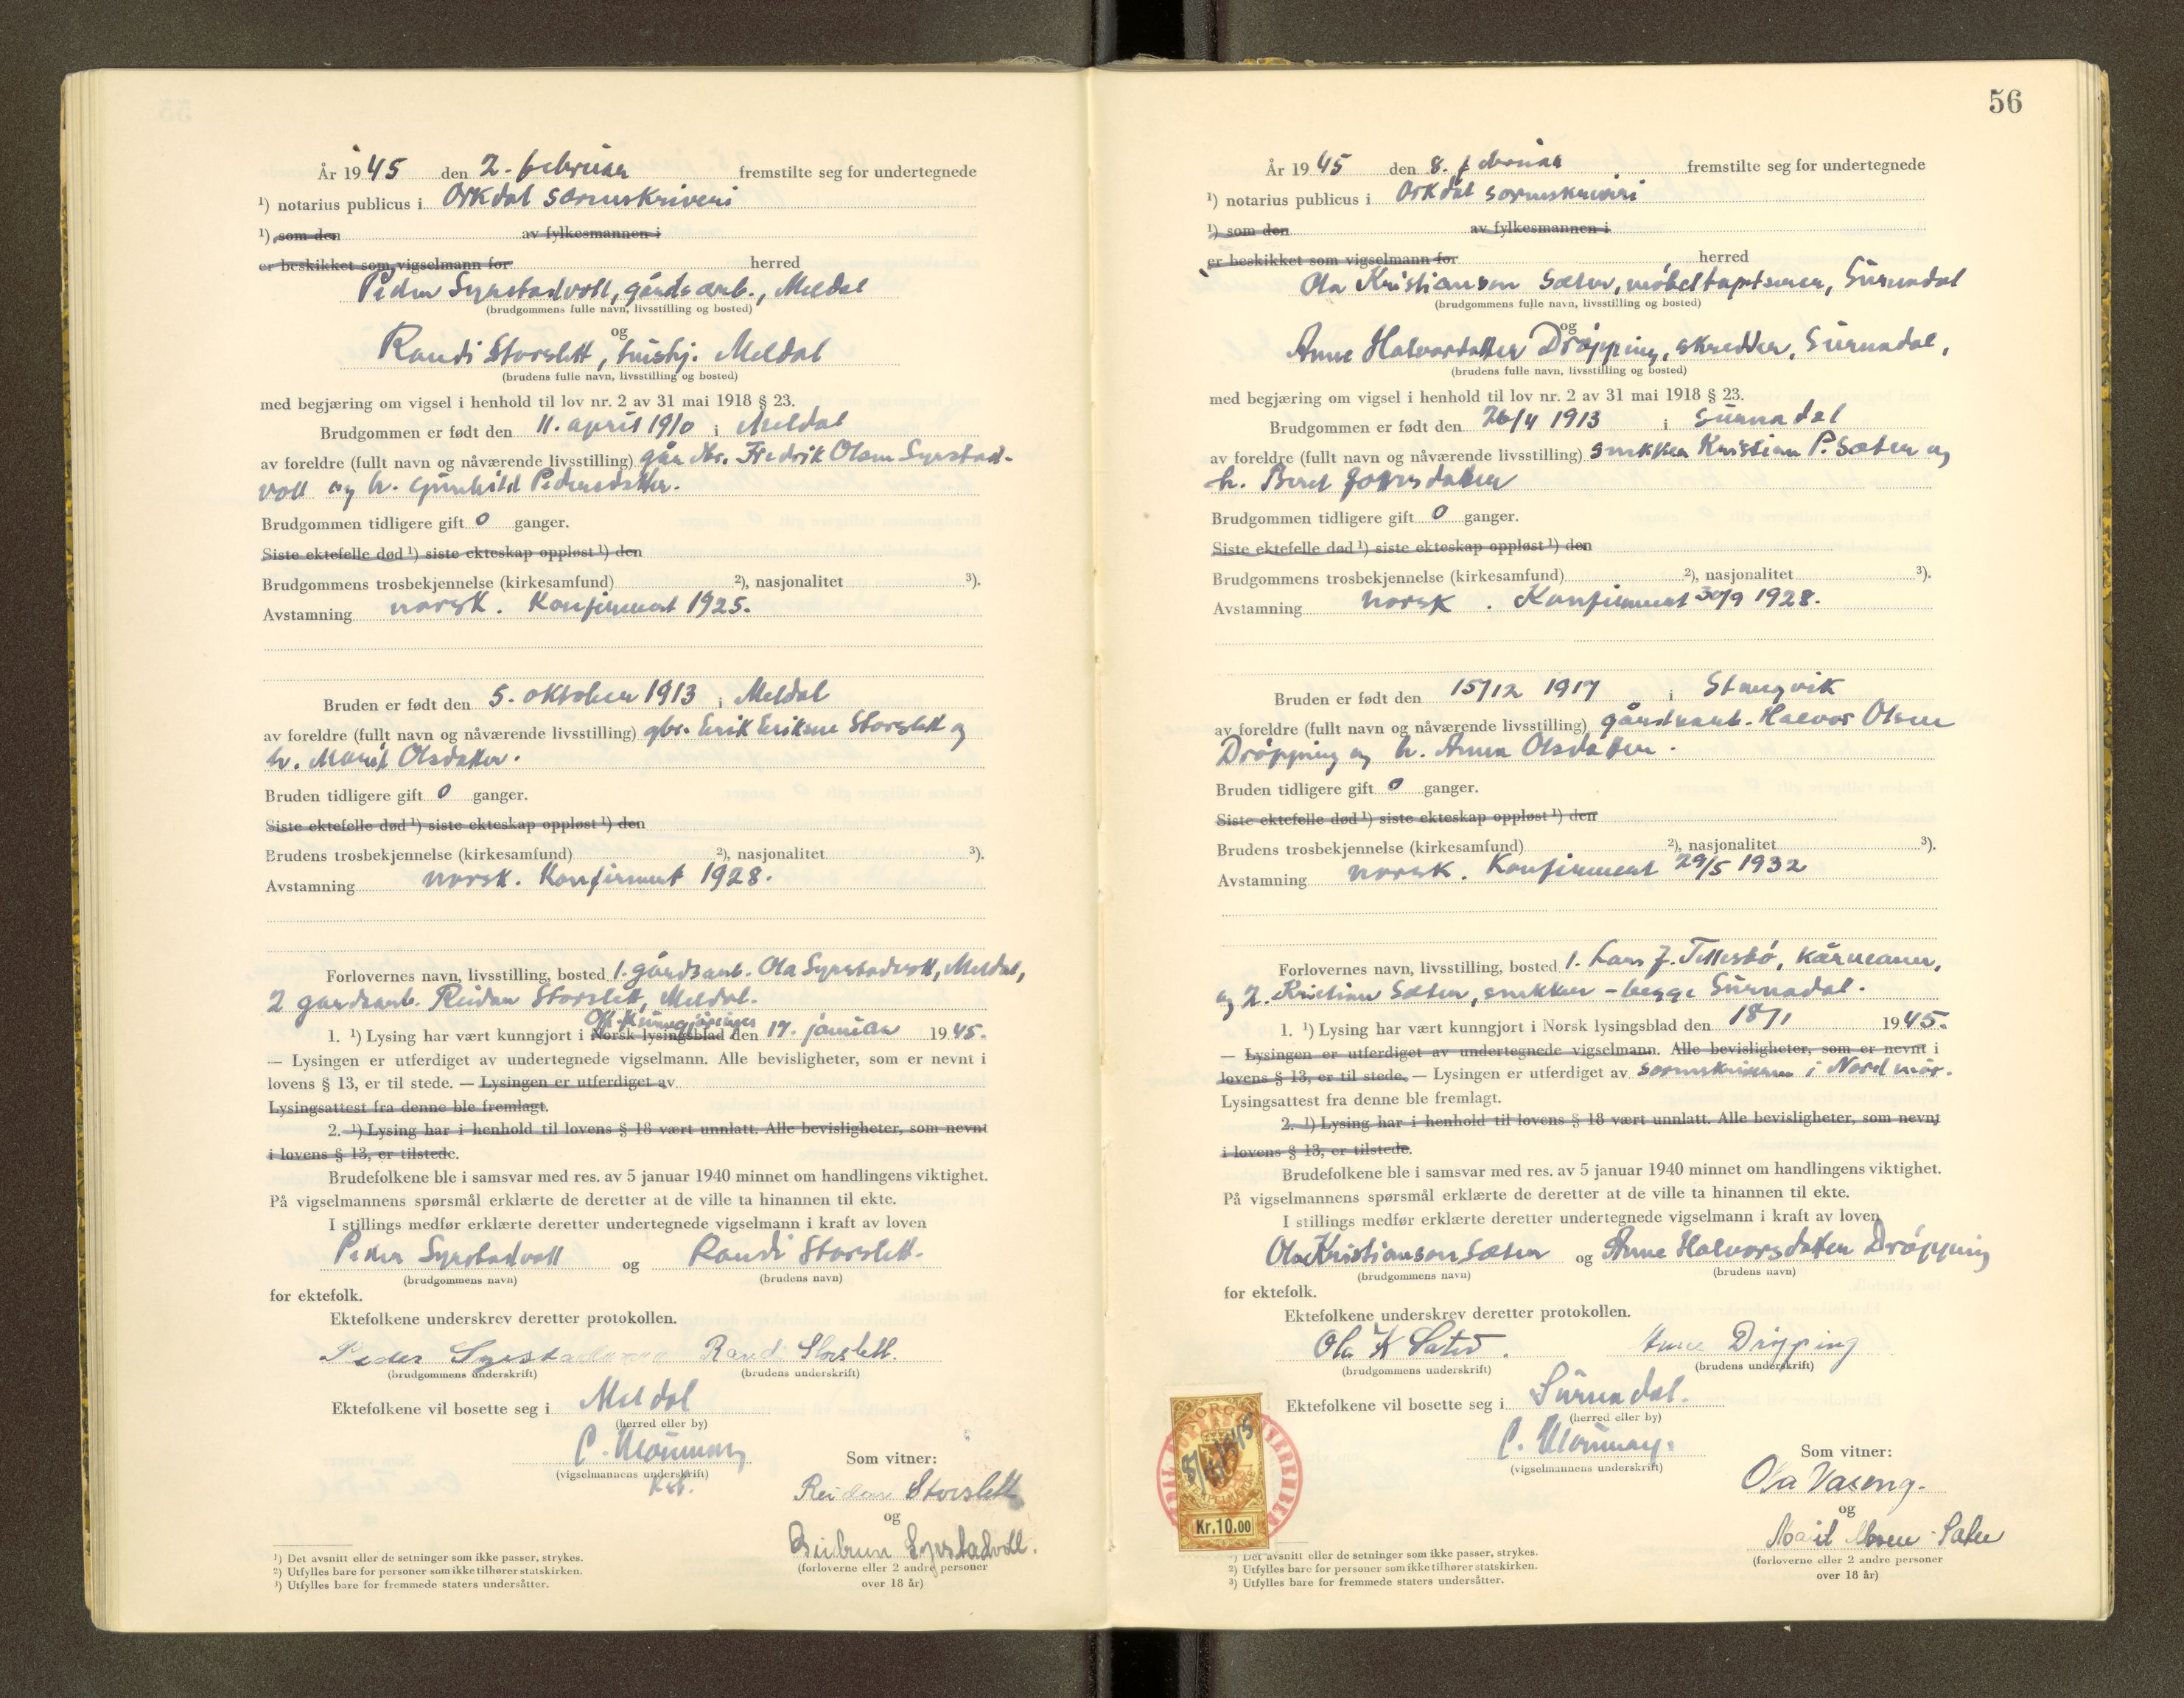 År 1945 den 2. februar fremstilte seg for undertegnede
¹) notarius publicus i Orkdal sorenskriveri
¹) som den av fylkesmannen i
er beskikket som vigselmann for herred
Peder Syrstadvoll, gårdsarb., Meldal
(brudgommens fulle navn, livsstilling og bosted)
og
Randi Storslett, hushj. Meldal
(brudens fulle navn, livsstilling og bosted)
med begjæring om vigsel i henhold til lov nr. 2 av 31 mai 1918 § 23.
Brudgommen er født den 11. april 1910 i Meldal
av foreldre (fullt navn og nåværende livsstilling) gårdbr. Fredrik Olsen Syrstad-
voll og h. Gunhild Pedersdatter.
Brudgommen tidligere gift 0 ganger.
Siste ektefelle død ¹) siste ekteskap oppløst ¹) den
Brudgommens trosbekjennelse (kirkesamfund) ²), nasjonalitet ³).
Avstamning norsk. Konfirmert 1925.
Bruden er født den 5. oktober 1913 i Meldal
av foreldre (fullt navn og nåværende livsstilling) gbr. Erik Eriksen Storslett og
h. Marit Olsdatter.
Bruden tidligere gift 0 ganger.
Siste ektefelle død ¹) siste ekteskap oppløst ¹) den
Brudens trosbekjennelse (kirkesamfund) ²), nasjonalitet ³).
Avstamning norsk. Konfirmert 1928.
Forlovernes navn, livsstilling, bosted 1. gårdsarb. Ola Syrstadvoll, Meldal,
2 gardsarb. Reidar Storslett, Meldal.
Off. kunngjøringer
1. ¹) Lysing har vært kunngjort i Norsk lysingsblad den 17. januar 1945.
— Lysingen er utferdiget av undertegnede vigselmann. Alle bevisligheter, som er nevnt i
lovens § 13, er til stede. — Lysingen er utferdiget av
Lysingsattest fra denne ble fremlagt.
2. ¹) Lysing har i henhold til lovens § 18 vært unnlatt. Alle bevisligheter, som nevnt
i lovens § 13, er tilstede.
Brudefolkene ble i samsvar med res. av 5 januar 1940 minnet om handlingens viktighet.
På vigselmannens spørsmål erklærte de deretter at de ville ta hinannen til ekte.
I stillings medfør erklærte deretter undertegnede vigselmann i kraft av loven
Peder Syrstadvoll og Randi Storslett.
(brudgommens navn) (brudens navn)
for ektefolk.
Ektefolkene underskrev deretter protokollen.
Peder Syrstadvoll Randi Storslett.
(brudgommens underskrift) (brudens underskrift)
Ektefolkene vil bosette seg i Meldal
(herred eller by)
(vigselmannens underskrift)
Som vitner:
Reidar Storslett
og
Syrstadvoll.
(forloverne eller 2 andre personer
over 18 år)
¹) Det avsnitt eller de setninger som ikke passer, strykes.
²) Utfylles bare for personer som ikke tilhører statskirken.
³) Utfylles bare for fremmede staters undersåtter.
56
År 1945 den 8. februar fremstilte seg for undertegnede
¹) notarius publicus i Orkdal sorenskriveri
¹) som den av fylkesmannen i
er beskikket som vigselmann for herred
Ola Kristianson Sæter, møbeltapetserer, Surnadal
(brudgommens fulle navn, livsstilling og bosted)
og
Anne Halvorsdatter Drøpping, skredder, Surnadal,
(brudens fulle navn, livsstilling og bosted)
med begjæring om vigsel i henhold til lov nr. 2 av 31 mai 1918 § 23.
Brudgommen er født den 26/4 1913 i Surnadal
av foreldre (fullt navn og nåværende livsstilling) snekker Kristian P. Sæter og
h. Beret
Brudgommen tidligere gift 0 ganger.
Siste ektefelle død ¹) siste ekteskap oppløst ¹) den
Brudgommens trosbekjennelse (kirkesamfund) ²), nasjonalitet ³).
Avstamning norsk. Konfirmert 30/9 1928.
Bruden er født den 15/12 1917 i Stangvik
av foreldre (fullt navn og nåværende livsstilling) gårdsarb. Halvor Olsen
Drøpping og h. Anna Olsdatter.
Bruden tidligere gift 0 ganger.
Siste ektefelle død ¹) siste ekteskap oppløst ¹) den
Brudens trosbekjennelse (kirkesamfund) ²), nasjonalitet ³).
Avstamning norsk. Konfirmert 29/5 1932
Forlovernes navn, livsstilling, bosted 1. Lars J. Tellesbø,
og 2. Kristian Sæter, snekker - begge Surnadal.
1. ¹) Lysing har vært kunngjort i Norsk lysingsblad den 18/1 1945.
— Lysingen er utferdiget av undertegnede vigselmann. Alle bevisligheter, som er nevnt i
lovens § 13, er til stede. — Lysingen er utferdiget av sorenskriveren i Nordmør.
Lysingsattest fra denne ble fremlagt.
2. ¹) Lysing har i henhold til lovens § 18 vært unnlatt. Alle bevisligheter, som nevnt
i lovens § 13, er tilstede.
Brudefolkene ble i samsvar med res. av 5 januar 1940 minnet om handlingens viktighet.
På vigselmannens spørsmål erklærte de deretter at de ville ta hinannen til ekte.
I stillings medfør erklærte deretter undertegnede vigselmann i kraft av loven
Ola Kristianson Sæter og Anne Halvorsdatter Drøpping
(brudgommens navn) (brudens navn)
for ektefolk.
Ektefolkene underskrev deretter protokollen.
Ola K Sæter. Anne Drøpping
(brudgommens underskrift) (brudens underskrift)
Ektefolkene vil bosette seg i Surnadal.
(herred eller by)
(vigselmannens underskrift)
Som vitner:
Ola Vaseng.
og
Sæter
(forloverne eller 2 andre personer
over 18 år)
NORGE
Kr. 10.00
¹) Det avsnitt eller de setninger som ikke passer, strykes.
²) Utfylles bare for personer som ikke tilhører statskirken.
³) Utfylles bare for fremmede staters undersåtter.